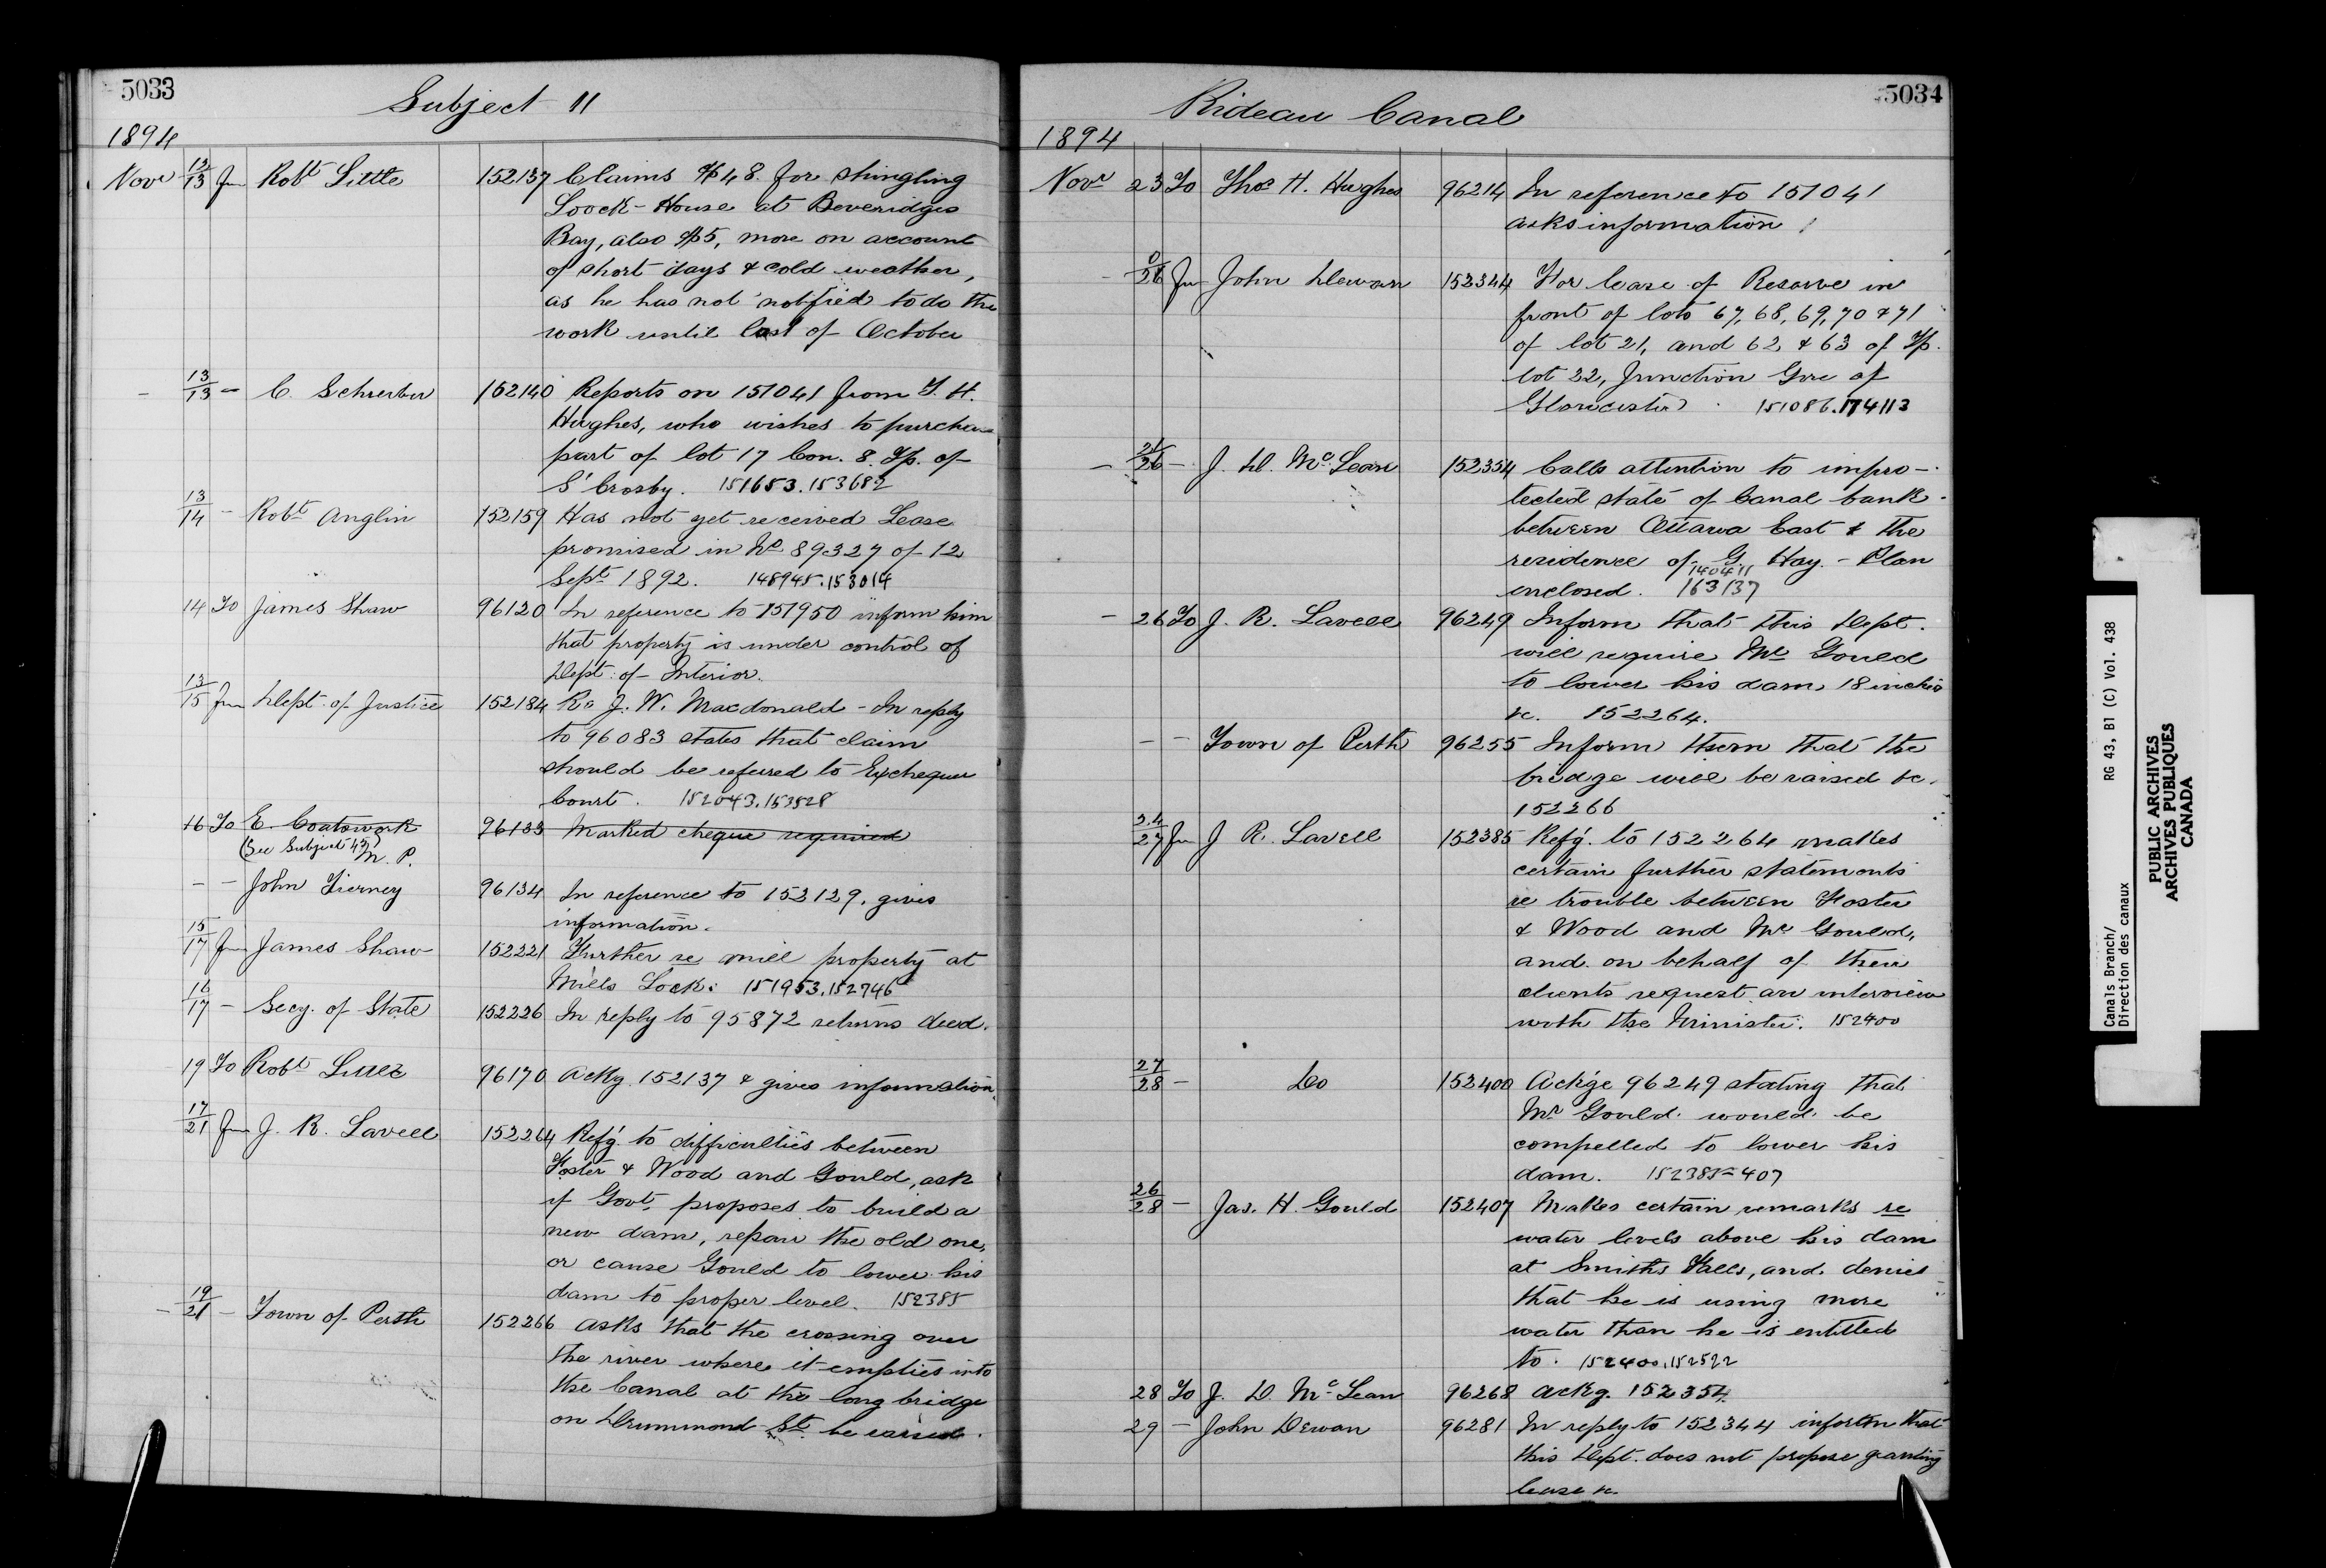 5033
Subject 11
1894
Novr 12/13 Fm Robt Little 152137 Claims $48. for shingling
Loock-House at Beveridges
Bay, also $5, more on account
of short days & cold weather,
as he has not notified to do the
work until last of October
- 13/13 - C. Schreiber 152140 Reports on 151041 from T. H.
Hughes, who wishes to purchase
part of lot 17 Con. 8. Tp. of
S' Crosby. 151653. 153682
13/14 - Robt Anglin 152159 Has not yet received Lease
promised in No 89327 of 12
Sept 1892. 148945. 153014
14 To James Shaw 96120 In reference to 151950 inform him
that property is under control of
Dept. of Interior.
13/15 Fm Dept. of Justice 152184 Re J. W. Macdonald - In reply
to 96083 states that claim
should be referred to Exchequer
Court. 152043. 153528
16 To E. Coatswork 96133 Marked cheque required
(See Subject 43) M. P.
- - John Tierney 96134 In reference to 152129, gives
information.
15/17 Fm James Shaw 152221 Further re mill property at
Mills Lock: 151953. 152746
16/17 - Secy. of State 152226 In reply to 95872 returns deed.
19 To Robt Little 96170 Ackg. 152137 & gives information.
17/21 Fm J. R. Lavell 152264 Refg. to difficulties between
Foster & Wood and Gould, ask
if Govt. proposes to build a
new dam, repair the old one,
or cause Gould to lower his
dam to proper level. 152385
- 19/21 - Town of Perth 152266 Asks that the crossing over
the river where it empties into
the Canal at the long bridge
on Drummond St. be raised.
5034
Rideau Canal
1894
Novr 23 To Thos H. Hughes 96214 In reference to 151041
asks information
- /26 Fm John Dewan 152344 For lease of Reserve in
front of lots 67, 68, 69, 70 & 71
of lot 21, and 62 & 63 of Tp.
lot 22, Junction Gore of
Gloucester 151086. 174113
- 21/26 - J. D. McLean 152354 Calls attention to impro-
tected state of Canal bank
between Ottawa East & the
residence of G. Hay. - Plan
140411
enclosed. 163137
- 26 To J. R. Lavell 96249 Inform that this Dept.
will require Mr Gould
to lower his dam, 18 inches
&c. 152264.
- - Town of Perth 96255 Inform them that the
bridge will be raised &c.
152266
24/27 Fm J R. Lavell 152385 Refg. to 152264 makes
certain further statements
re trouble between Foster
& Wood and Mr Gould,
and on behalf of their
clients request an interview
with the Minister. 152400
27/28 - Do 152400 Ackge 96249 stating that
Mr Gould would be
compelled to lower his
dam. 152385 = 407
26/28 - Jas. H. Gould 152407 Makes certain remarks re
water levels above his dam
at Smiths Falls, and denies
that he is using more
water than he is entitled
to. 152400. 152522
28 To J. D. McLean 96268 Ackg. 152354.
29 - John Dewan 96281 In reply to 152344 inform that
this Dept. does not propose granting
lease &c.
Canals Branch/
Direction des canaux
RG 43, B1 (C) Vol. 438
PUBLIC ARCHIVES
ARCHIVES PUBLIQUES
CANADA